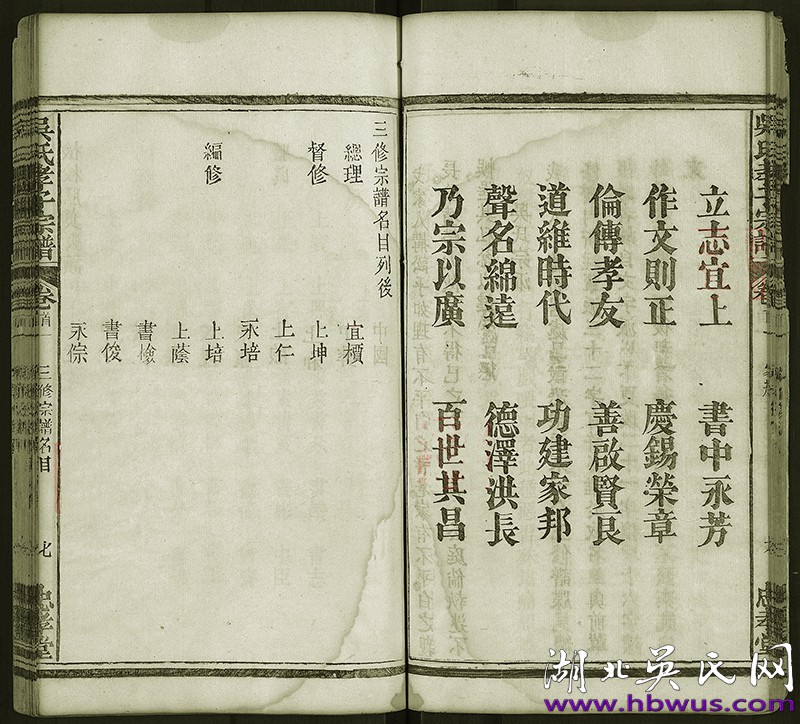 立志宜上 書中永芳
作文則正 慶錫榮章
倫傳孝友 善啟賢良
道維時代 功建家邦
聲名綿遠 德澤洪長
乃宗以廣 百世其昌
三修宗譜名目列後
總理 宜櫝
督修 上坤
上仁
永培
編修 上培
上蔭
書檢
書俊
永倧
吳氏孝子宗譜
卷首
三修宗譜名目
七
忠孝堂
湖北吴氏网
www.hbwus.com